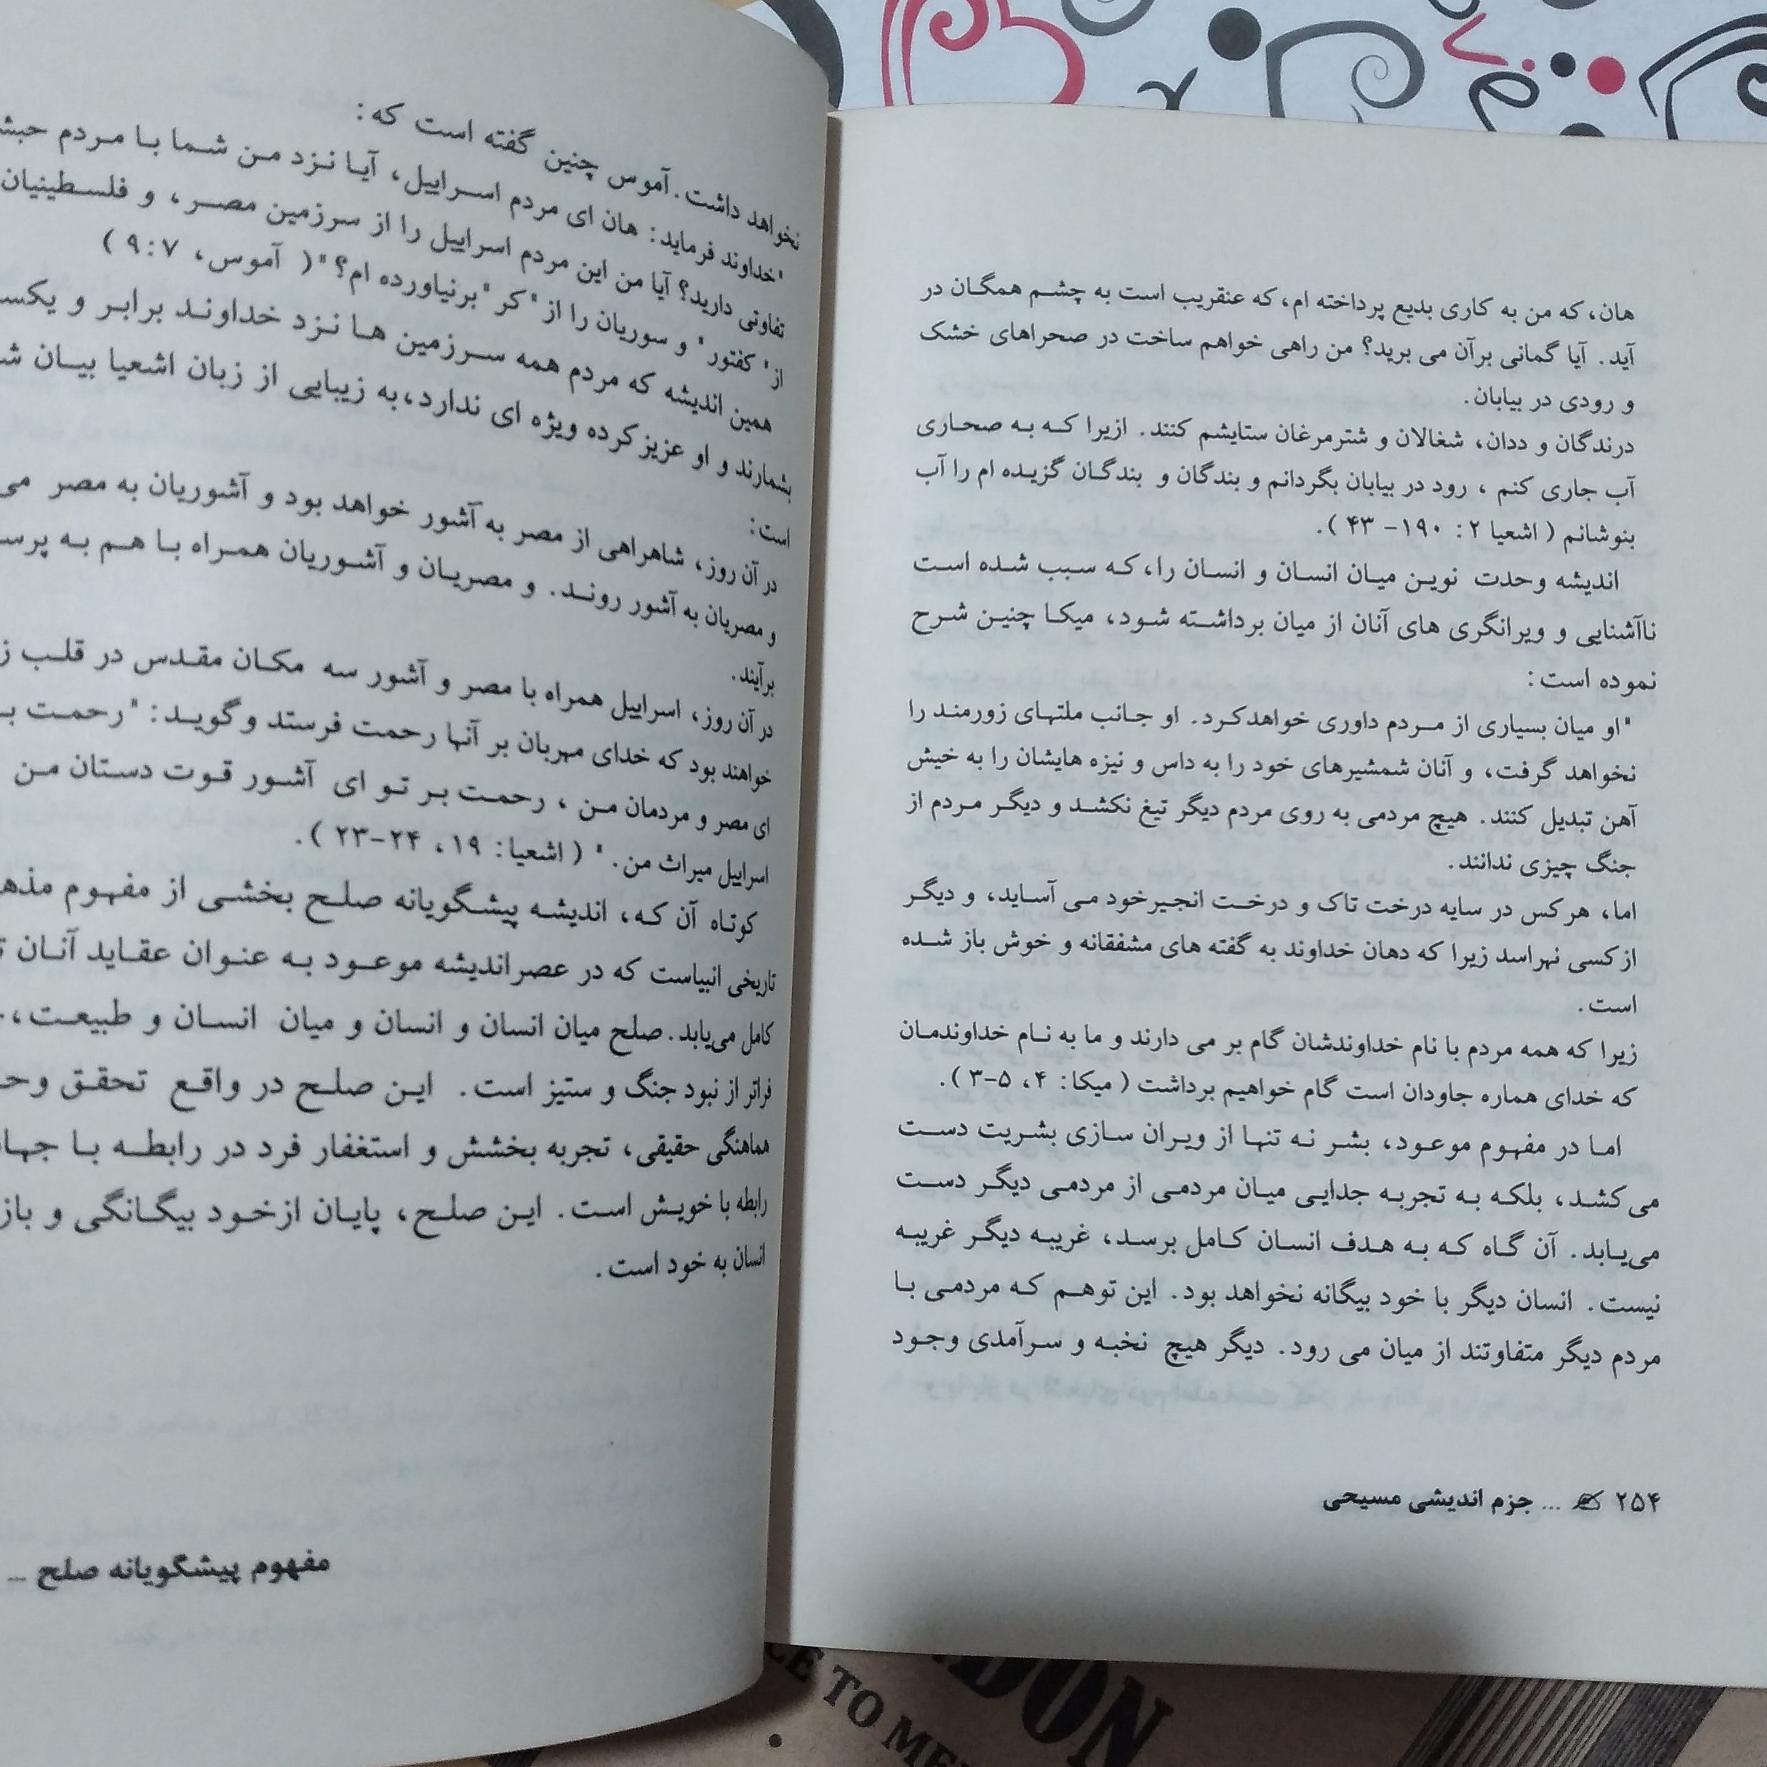 هان، که من به کاری بدیع پرداخته ام، که عنقریب است به چشم همگان در
آید. آیا گمانی برآن می برید؟ من راهی خواهم ساخت در صحراهای خشک
و رودی در بیابان.
درندگان و ددان، شغالان و شترمرغان ستایشم کنند. ازیرا که به صحاری
آب جاری کنم ، رود در بیابان بگردانم و بندگان و بندگان گزیده ام را آب
بنوشانم ( اشعیا ۲: ۱۹۰- ۴۳ ).
اندیشه وحدت نوین میان انسان و انسان را، که سبب شده است
ناآشنایی و ویرانگری های آنان از میان برداشته شود، میکا چنین شرح
نموده است:
"او میان بسیاری از مردم داوری خواهدکرد. او جانب ملتهای زورمند را
نخواهد گرفت، و آنان شمشیرهای خود را به داس و نیزه هایشان را به خیش
آهن تبدیل کنند. هیچ مردمی به روی مردم دیگر تیغ نکشد و دیگر مردم از
جنگ چیزی ندانند.
اما، هرکس در سایه درخت تاک و درخت انجیرخود می آساید، و دیگر
ازکسی نهراسد زیرا که دهان خداوند به گفته های مشفقانه و خوش باز شده
است.
زیرا که همه مردم با نام خداوندشان گام بر می دارند و ما به نام خداوندمان
که خدای هماره جاودان است گام خواهیم برداشت ( میکا: ۴، ۵-۳ ).
اما در مفهوم موعود، بشر نه تنها از ویران سازی بشریت دست
می‌کشد، بلکه به تجربه جدایی میان مردمی از مردمی دیگر دست
می‌یابد. آن گاه که به هدف انسان کامل برسد، غریبه دیگر غریبه
نیست. انسان دیگر با خود بیگانه نخواهد بود. این توهم که مردمی با
مردم دیگر متفاوتند از میان می رود. دیگر هیچ نخبه و سرآمدی وجود
۲۵۴ ... جزم اندیشی مسیحی
نخواهد داشت. آموس چنین گفته است که:
"خداوند فرماید: هان ای مردم اسراییل، آیا نزد من شما با مردم
تفاوتی دارید؟ آیا من این مردم اسراییل را از سرزمین مصر، و فلسطینیان
از "کفتور" و سوریان را از "کر" برنیاورده ام؟" ( آموس، ۹:۷ )
همین اندیشه که مردم همه سرزمین ها نزد خداوند برابر و
بشمارند و او عزیزکرده ویژه ای ندارد، به زیبایی از زبان اشعیا بیان
است:
در آن روز، شاهراهی از مصر به آشور خواهد بود و آشوریان به مصر
و مصریان به آشور روند. و مصریان و آشوریان همراه با هم به
برآیند.
در آن روز، اسراییل همراه با مصر و آشور سه مکان مقدس در قلب
خواهند بود که خدای مهربان بر آنها رحمت فرستد و گوید: "رحمت
ای مصر و مردمان من ، رحمت بر تو ای آشور قوت دستان من
اسراییل میراث من. " ( اشعیا: ۱۹، ۲۴-۲۳ ).
کوتاه آن که، اندیشه پیشگویانه صلح بخشی از مفهوم
تاریخی انبیاست که در عصراندیشه موعود به عنوان عقاید آنان
کامل می‌یابد. صلح میان انسان و انسان و میان انسان و طبیعت،
فراتر از نبود جنگ و ستیز است. این صلح در واقع تحقق
هماهنگی حقیقی، تجربه بخشش و استغفار فرد در رابطه با
رابطه با خویش است. این صلح، پایان ازخود بیگانگی و
انسان به خود است.
مفهوم پیشگویانه صلح ...
TO